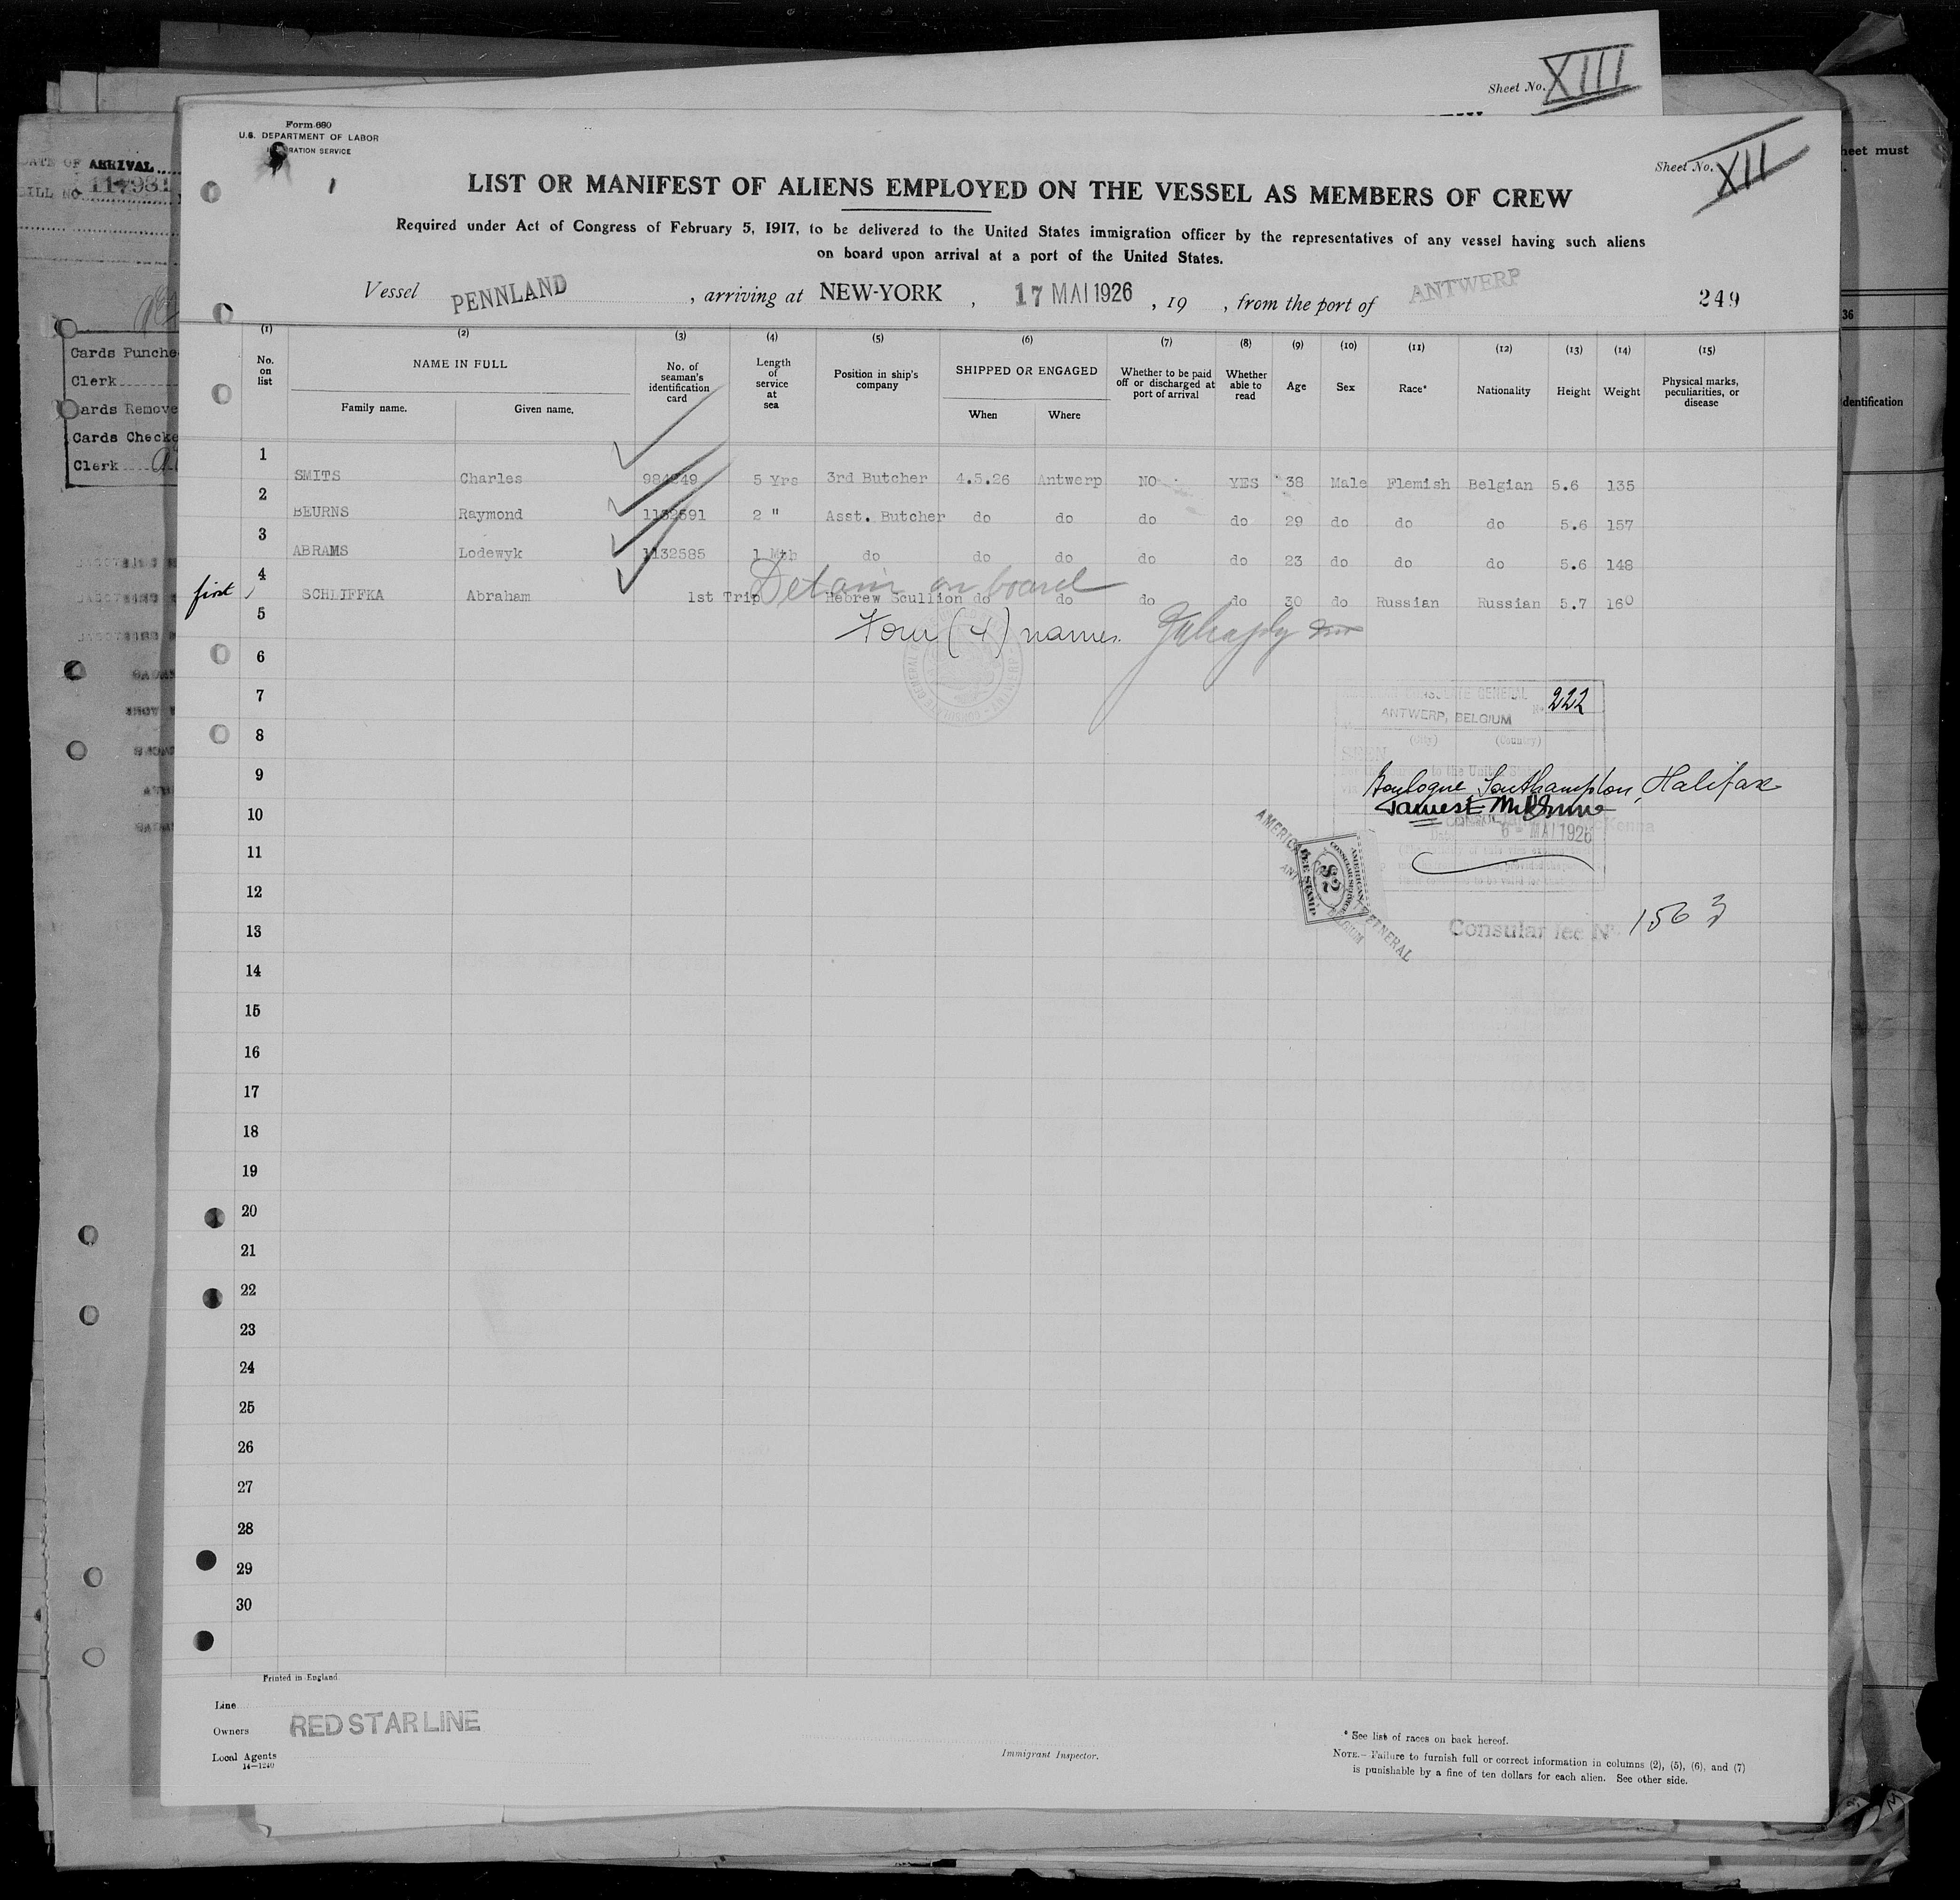 Sheet No. XIII
Form 680
U.S. DEPARTMENT OF LABOR
RATION SERVICE
Sheet No. XII
DATE OF ARRIVAL
BILL NO. 117981
heet must
LIST OR MANIFEST OF ALIENS EMPLOYED ON THE VESSEL AS MEMBERS OF CREW
Required under Act of Congress of February 5, 1917, to be delivered to the United States immigration officer by the representatives of any vessel having such aliens
on board upon arrival at a port of the United States.
Vessel PENNLAND , arriving at NEW-YORK , 17 MAI 1926 , 19 , from the port of ANTWERP 249
36
Cards Punche
Clerk
ards Remove
Cards Checke
Clerk
dentification
(1) (2) (3) (4) (5) (6) (7) (8) (9) (10) (11) (12) (13) (14) (15)
No. on list NAME IN FULL Family name. Given name. No. of seaman's identification card Length of service at sea Position in ship's company SHIPPED OR ENGAGED When Where Whether to be paid off or discharged at port of arrival Whether able to read Age Sex Race* Nationality Height Weight Physical marks, peculiarities, or disease
1 SMITS Charles 984849 5 Yrs 3rd Butcher 4.5.26 Antwerp NO YES 38 Male Flemish Belgian 5.6 135
2 BEURNS Raymond 1132691 2 " Asst. Butcher do do do do 29 do do do 5.6 157
3 ABRAMS Lodewyk 1132585 1 Mth do do do do do 23 do do do 5.6 148
Detain on board
first 4 SCHLIFFKA Abraham 1st Trip Hebrew Scullion do do do do 30 do Russian Russian 5.7 160
5 Four (4) names.
6
7
CONSULATE GENERAL No 222
ANTWERP, BELGIUM
(City) (Country)
8
SEEN
to the United S
9
Boulogne, Southampton, Halifax
10
CONSUL
6 - MAI 1926
11
AMERICAN CONSULAR SERVICE
$2
FEE STAMP
12
Consular fee No 1563
13
14
15
16
17
18
19
20
21
22
23
24
25
26
27
28
29
30
Printed in England
Line
Owners RED STAR LINE
Local Agents
14—1240
Immigrant Inspector.
* See list of races on back hereof.
NOTE.— Failure to furnish full or correct information in columns (2), (5), (6), and (7)
is punishable by a fine of ten dollars for each alien. See other side.